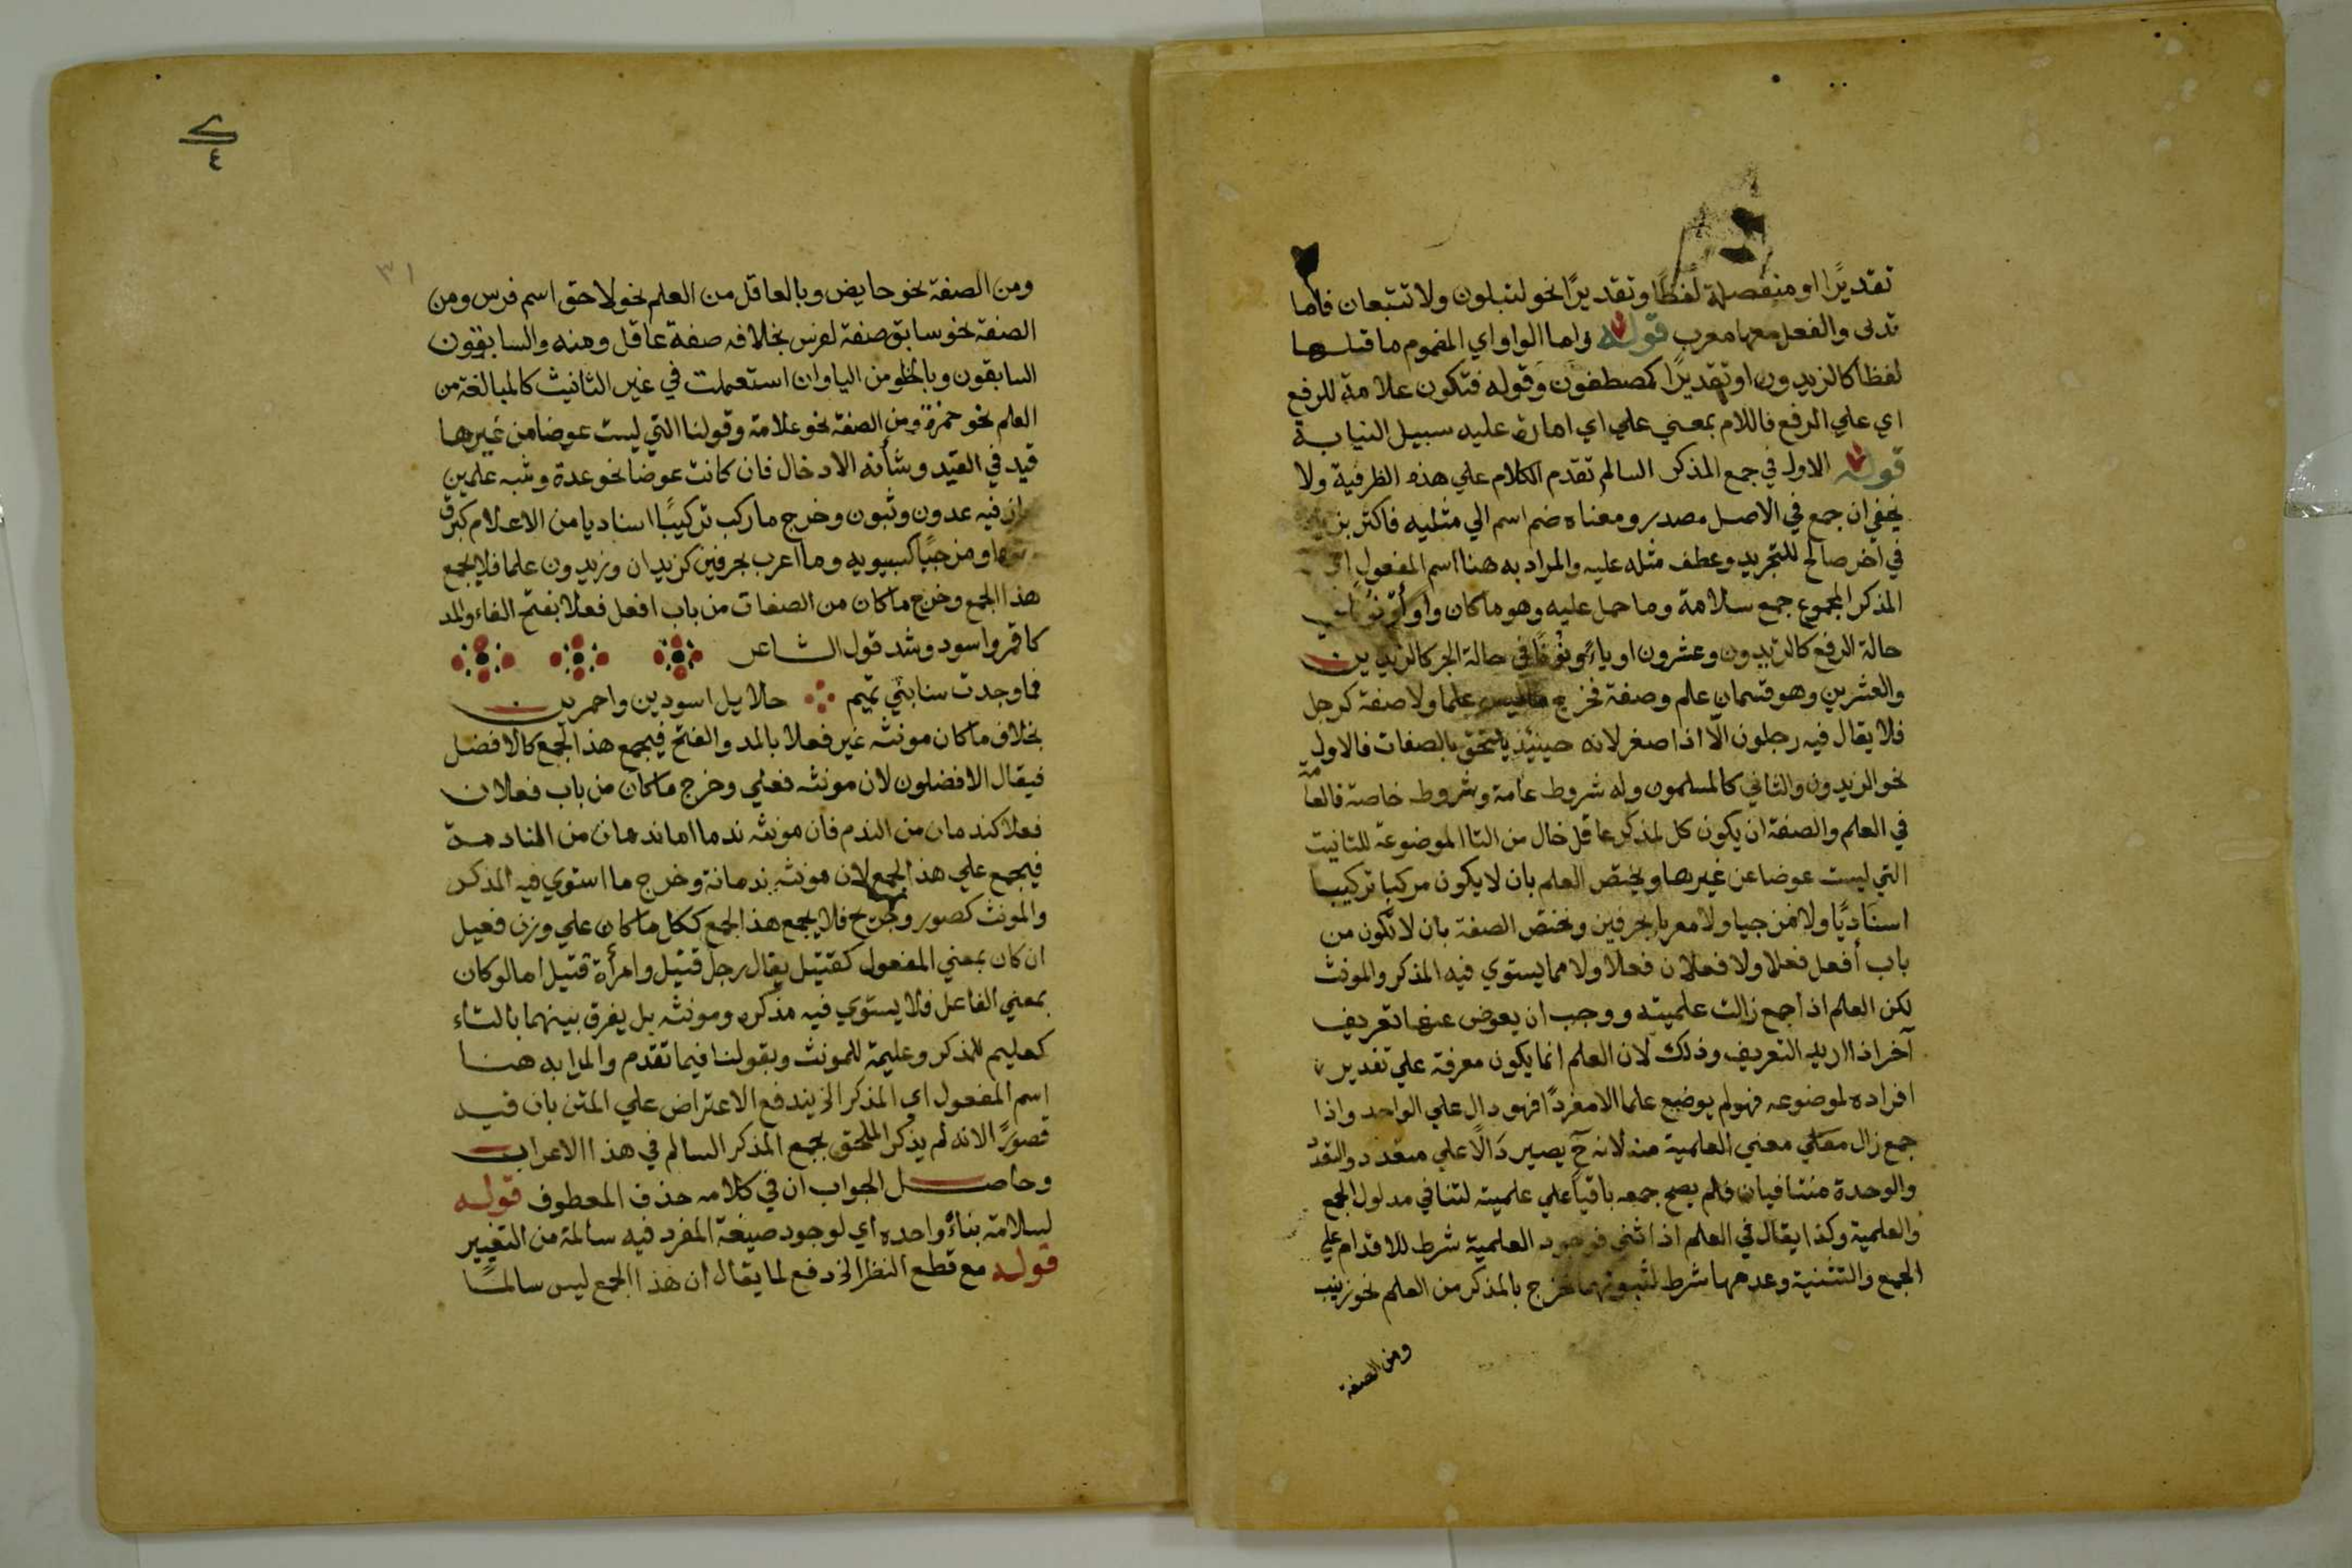 تقديرًا او منفصلة لفظًا وتقديرًا نحو لتبلون ولا تتبعان فاما
تدلى والفعل معها معرب قوله واما الواو اي المضموم ما قبلها
لفظا كالزيدون او تقديرًا كمصطفون وقوله فتكون علامة للرفع
اي علي الرفع فاللام بمعني علي اي امارة عليه سبيل النيابة
قوله الاول في جمع المذكر السالم تقدم الكلام علي هذه الظرفية ولا
يخفي ان جمع في الاصل مصدر ومعناه ضم اسم الي مثليه فاكثر
في اخر صالح للتجريد وعطف مثله عليه والمراد به هنا اسم المفعول اي
المذكر المجموع جمع سلامة وما حمل عليه وهو ما كان واوا ونونا في
حالة الرفع كالزيدون وعشرون او ياءً ونونًا في حالة الجر كالزيدين
والعشرين وهو قسمان علم وصفة فخرج ما ليس علما ولا صفة كرجل
فلا يقال فيه رجلون الّا اذا صغر لانه حينيذ يلتحق بالصفات فالاول
نحو الزيدون والثاني كالمسلمون وله شروط عامة وشروط خاصة فالعامة
في العلم والصفة ان يكون كل لمذكر عاقل خال من التا الموضوعة للتانيث
التي ليست عوضا عن غيرها ويختص العلم بان لا يكون مركبا تركيبا
اسنَاديًا ولا مزجيا ولا معربا بحرفين وتختص الصفة بان لا تكون من
باب أفعل فعلا ولا فعلان فعلا ولا مما يستوي فيه المذكر والمونث
لكن العلم اذا جمع زالت علميته ووجب ان يعوض عنها تعريف
آخر اذا اريد التعريف وذلك لان العلم انما يكون معرفة علي تقدير
افراده لموضوعه فهو لم يوضع علما الا مفردًا فهو دال علي الواحد واذا
جمع زال معني العلمية منه لانه ح يصير دَالًا علي متعدد والتعدد
والوحدة متنافيان فلم يصح جمعه باقيا علي علميته لتنافي مدلول الجمع
والعلمية وكذا يقال في العلم اذا ثني فوجود العلمية شرط للاقدام علي
الجمع والتثنية وعدمها شرط لثبوتهما فخرج بالمذكر من العلم نحو زينب
ومن الصفة
٣١
٤
ومن الصفة نحو حايض وبالعاقل من العلم نحو لاحق اسم فرس ومن
الصفة نحو سابق صفة لفرس بخلافه صفة عاقل ومنه والسابقون
السابقون وبالخلو من اليا وان استعملت في غير التانيث كالمبالغة من
العلم نحو حمزة ومن الصفة نحو علامة وقولنا التي ليست عوضا من غيرها
قيد في القيد وشأنه الادخال فان كانت عوضا نحو عدة وثبه علمين
فيه عدون وثبون وخرج ما ركب تركيبًا اسناديا من الاعلام كبرق
او مزجيًا كسيبويه وما اعرب بحرفين كزيدان وزيدون علما فلا يجمع
هذا الجمع وخرج ما كان من الصفات من باب افعل فعلا بفتح الفاء والمد
كاقمر واسود وشد قول الشاعر
فما وجدت بنات بني تميم حلايل اسودين واحمرين
بخلاف ما كان مونثه غير فعلا بالمد والفتح فيجمع هذا الجمع كالافضل
فيقال الافضلون لان مونثه فعلي وخرج ما كان من باب فعلان
فعلا كندمان من الندم فان مونثه ندما اما ندمان من المنادمة
فيجمع علي هذا الجمع لان مونثه ندمانة وخرج ما استوي فيه المذكر
والمونث كصبور وجريح فلا يجمع هذا الجمع ككل ما كان علي وزن فعيل
ان كان بمعني المفعول كقتيل يقال رجل قتيل وامرأة قتيل اما لو كان
بمعني الفاعل فلا يستوي فيه مذكره ومونثه بل يفرق بينهما بالتاء
كعليم للمذكر وعليمة للمونث وبقولنا فيما تقدم والمراد به هنا
اسم المفعول اي المذكر الخ يندفع الاعتراض علي المتن بان فيه
قصورًا لانه لم يذكر الملحق بجمع المذكر السالم في هذا الاعراب
وحاصل الجواب ان في كلامه حذف المعطوف قوله
لسلامة بناء واحده اي لوجود صيغة المفرد فيه سالمة من التغيير
قوله مع قطع النظر الخ دفع لما يقال ان هذا الجمع ليس سالمًا